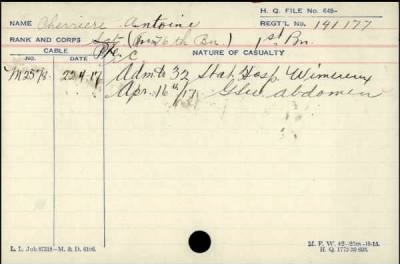 H. Q. FILE No. 649-
NAME Cherriere Antoine REGT'L No. 141177
RANK AND CORPS Sgt ( 76th Bn.) 1st Bn.
CABLE Pte. NATURE OF CASUALTY
No. DATE
M2578 22.4.17 Adm to 32 Stat. Hosp. Wimereux
Apr. 16th/17 G.S.W. abdomen
L. L. Job 87213—M. & D. 6106.
M. F. W. 42-25m-10-16.
H. Q. 1772-39-635.